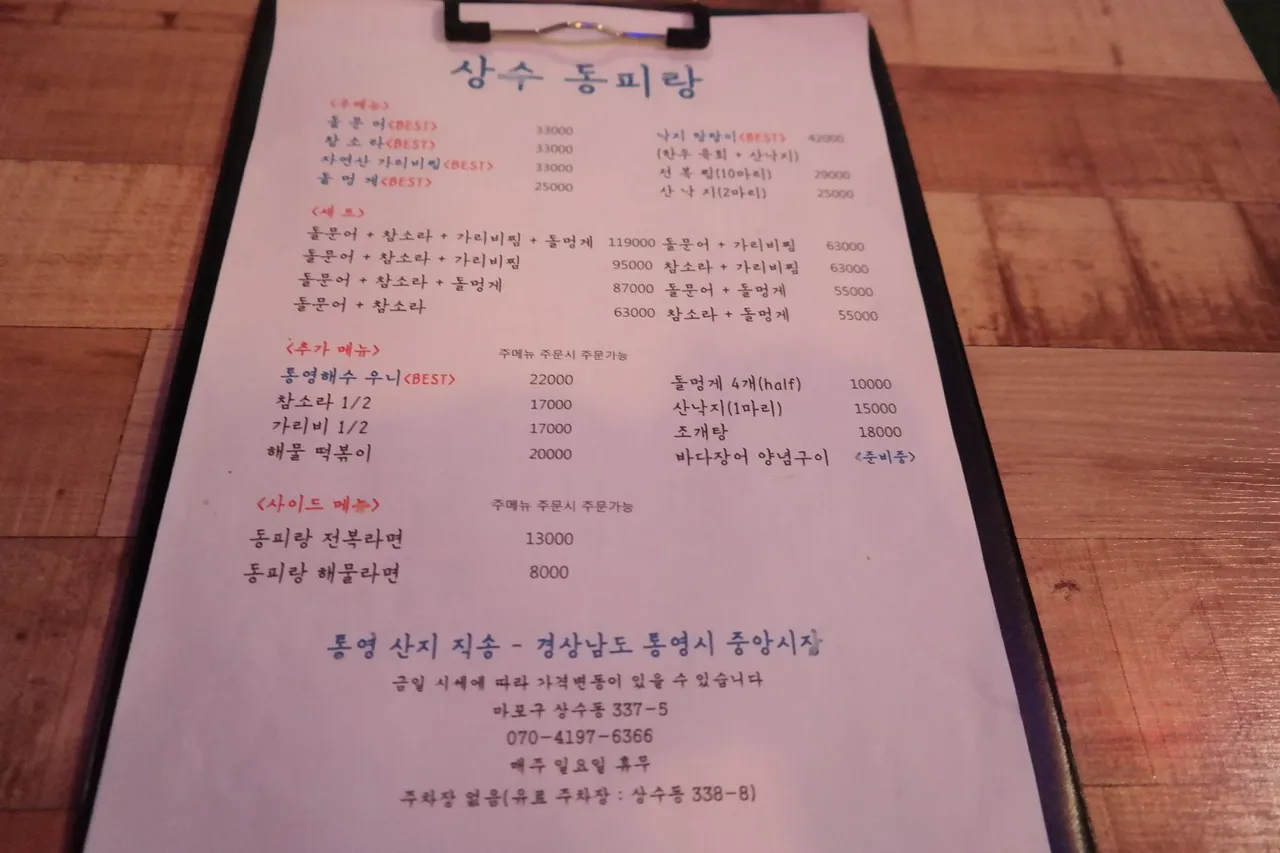 상수 동피랑
<주메뉴>
돌 문 어<BEST> 33000
참 소 라<BEST> 33000
자연산 가리비찜<BEST> 33000
돌 멍 게<BEST> 25000
낙지 탕탕이<BEST> 42000
(한우 육회 + 산낙지)
전 복 찜(10마리) 29000
산 낙 지(2마리) 25000
<세 트>
돌문어 + 참소라 + 가리비찜 + 돌멍게 119000
돌문어 + 참소라 + 가리비찜 95000
돌문어 + 참소라 + 돌멍게 87000
돌문어 + 참소라 63000
돌문어 + 가리비찜 63000
참소라 + 가리비찜 63000
돌문어 + 돌멍게 55000
참소라 + 돌멍게 55000
<추가 메뉴> 주메뉴 주문시 주문가능
통영해수 우니<BEST> 22000
참소라 1/2 17000
가리비 1/2 17000
해물 떡볶이 20000
돌멍게 4개(half) 10000
산낙지(1마리) 15000
조개탕 18000
바다장어 양념구이 <준비중>
<사이드 메뉴> 주메뉴 주문시 주문가능
동피랑 전복라면 13000
동피랑 해물라면 8000
통영 산지 직송 - 경상남도 통영시 중앙시장
금일 시세에 따라 가격변동이 있을 수 있습니다
마포구 상수동 337-5
070-4197-6366
매주 일요일 휴무
주차장 없음(유료 주차장 : 상수동 338-8)